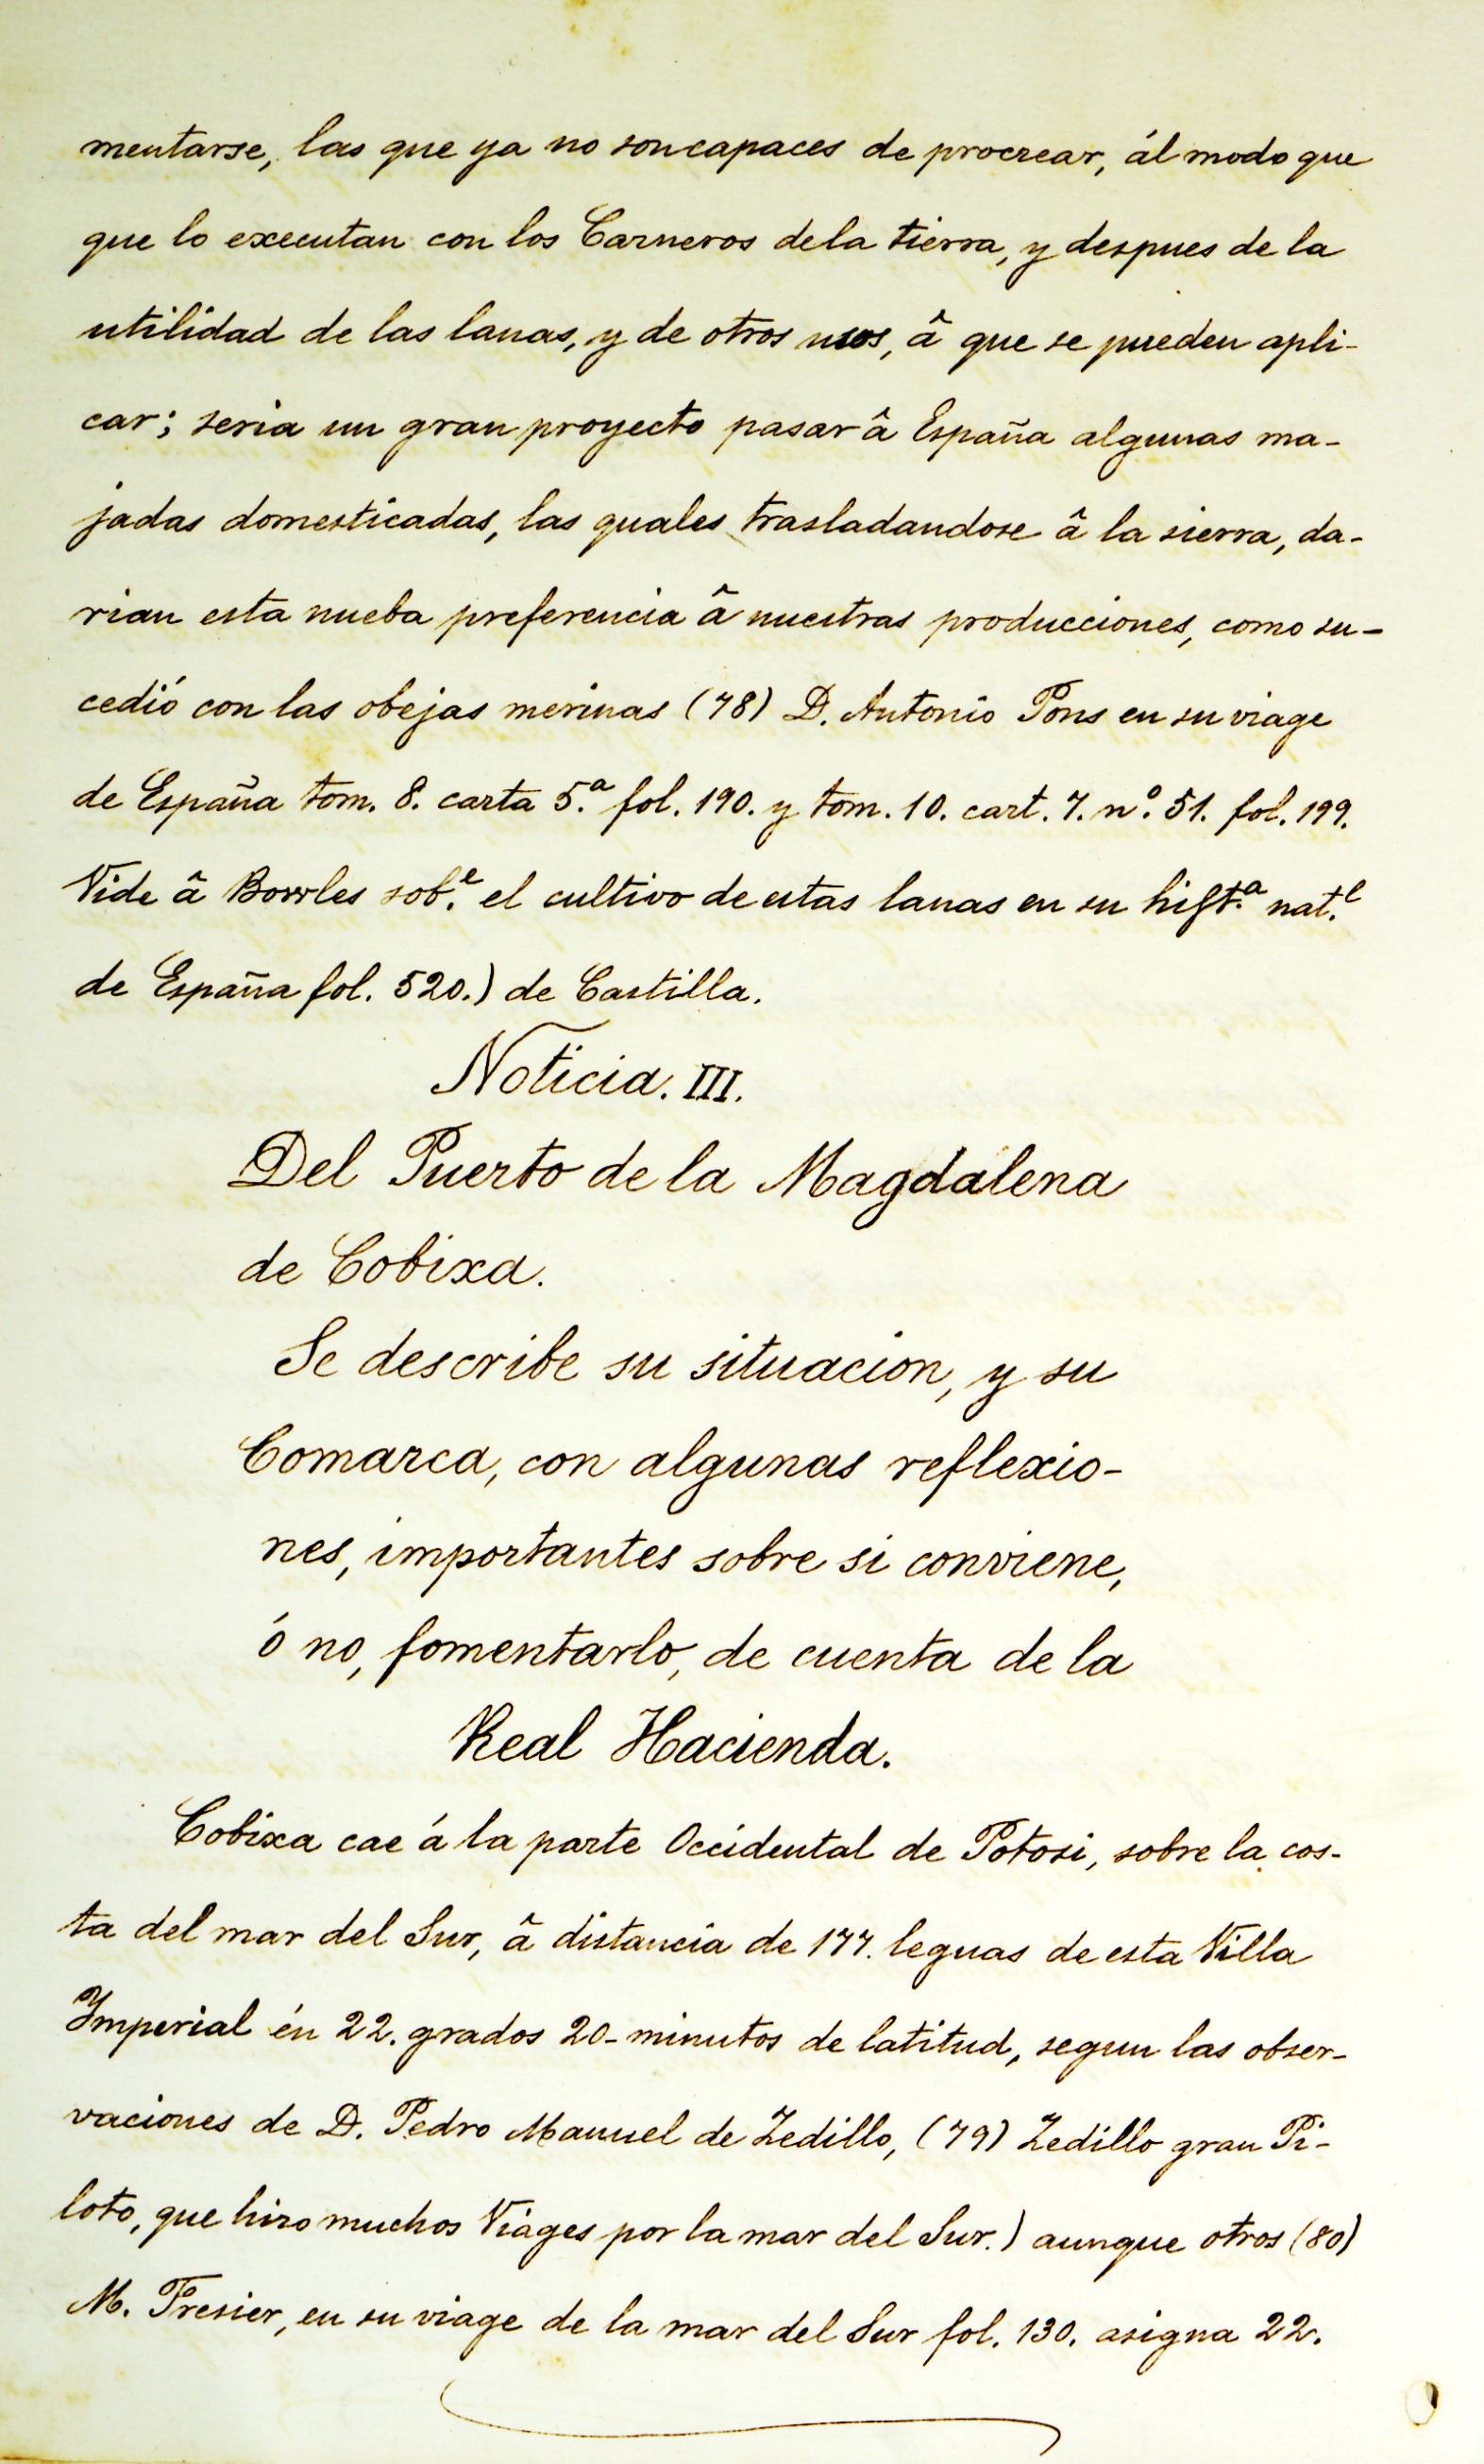 mentarse, las que ya no son capaces de procrear, ál modo que
que lo executan con los Carneros dela tierra, y despues de la
utilidad de las lanas, y de otros usos, â que se pueden apli-
car; seria un gran proyecto pasar â España algunas ma-
jadas domesticadas, las quales trasladandose â la sierra, da-
rian esta nueba preferencia â nuestras producciones, como su-
cedió con las obejas merinas (78) D. Antonio Pons en su viage
de España tom. 8. carta 5.ª fol. 190. y tom. 10. cart. 7. n.º 51. fol. 199.
Vide â Bowles sob.e el cultivo de estas lanas en su hist.ª nat.l
de España fol. 520.) de Castilla.
Noticia. III.
Del Puerto de la Magdalena
de Cobixa.
Se describe su situacion, y su
Comarca, con algunas reflexio-
nes, importantes sobre si conviene,
ó no, fomentarlo, de cuenta de la
Real Hacienda.
Cobixa cae á la parte Occidental de Potosi, sobre la cos-
ta del mar del Sur, â distancia de 177. leguas de esta Villa
Imperial én 22. grados 20-minutos de latitud, segun las obser-
vaciones de D. Pedro Manuel de Zedillo, (79) Zedillo gran Pi-
loto, que hizo muchos Viages por la mar del Sur.) aunque otros (80)
M. Fresier, en su viage de la mar del Sur fol. 130. asigna 22.